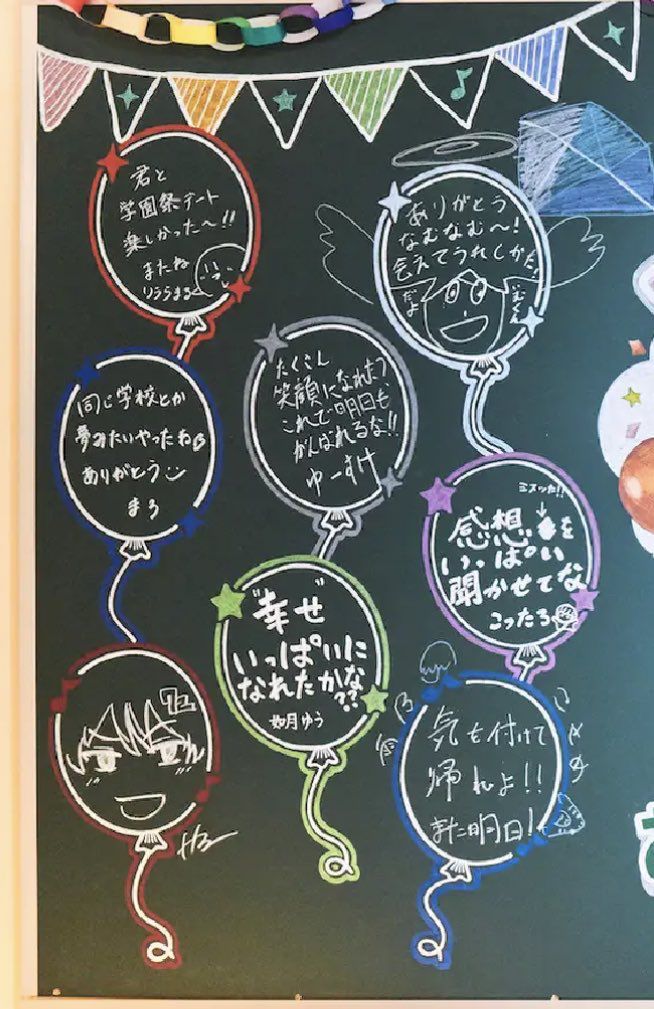 君と
学園祭デート
楽しかった〜!!
またね
りうらまる
ありがとう
なむなむ〜!
会えてうれしかた!
だよ
いむくん
同じ学校とか
夢みたいやったね
ありがとう
まろ
たくさん
笑顔になれたっ
これで明日も
がんばれるな!!
ゆーすけ
ミスった!!
感想を
いっぱい
聞かせてな
こったろ
"幸せ"
いっぱいに
なれたかな??
如月ゆう
気を付けて
帰れよ!!
また明日!